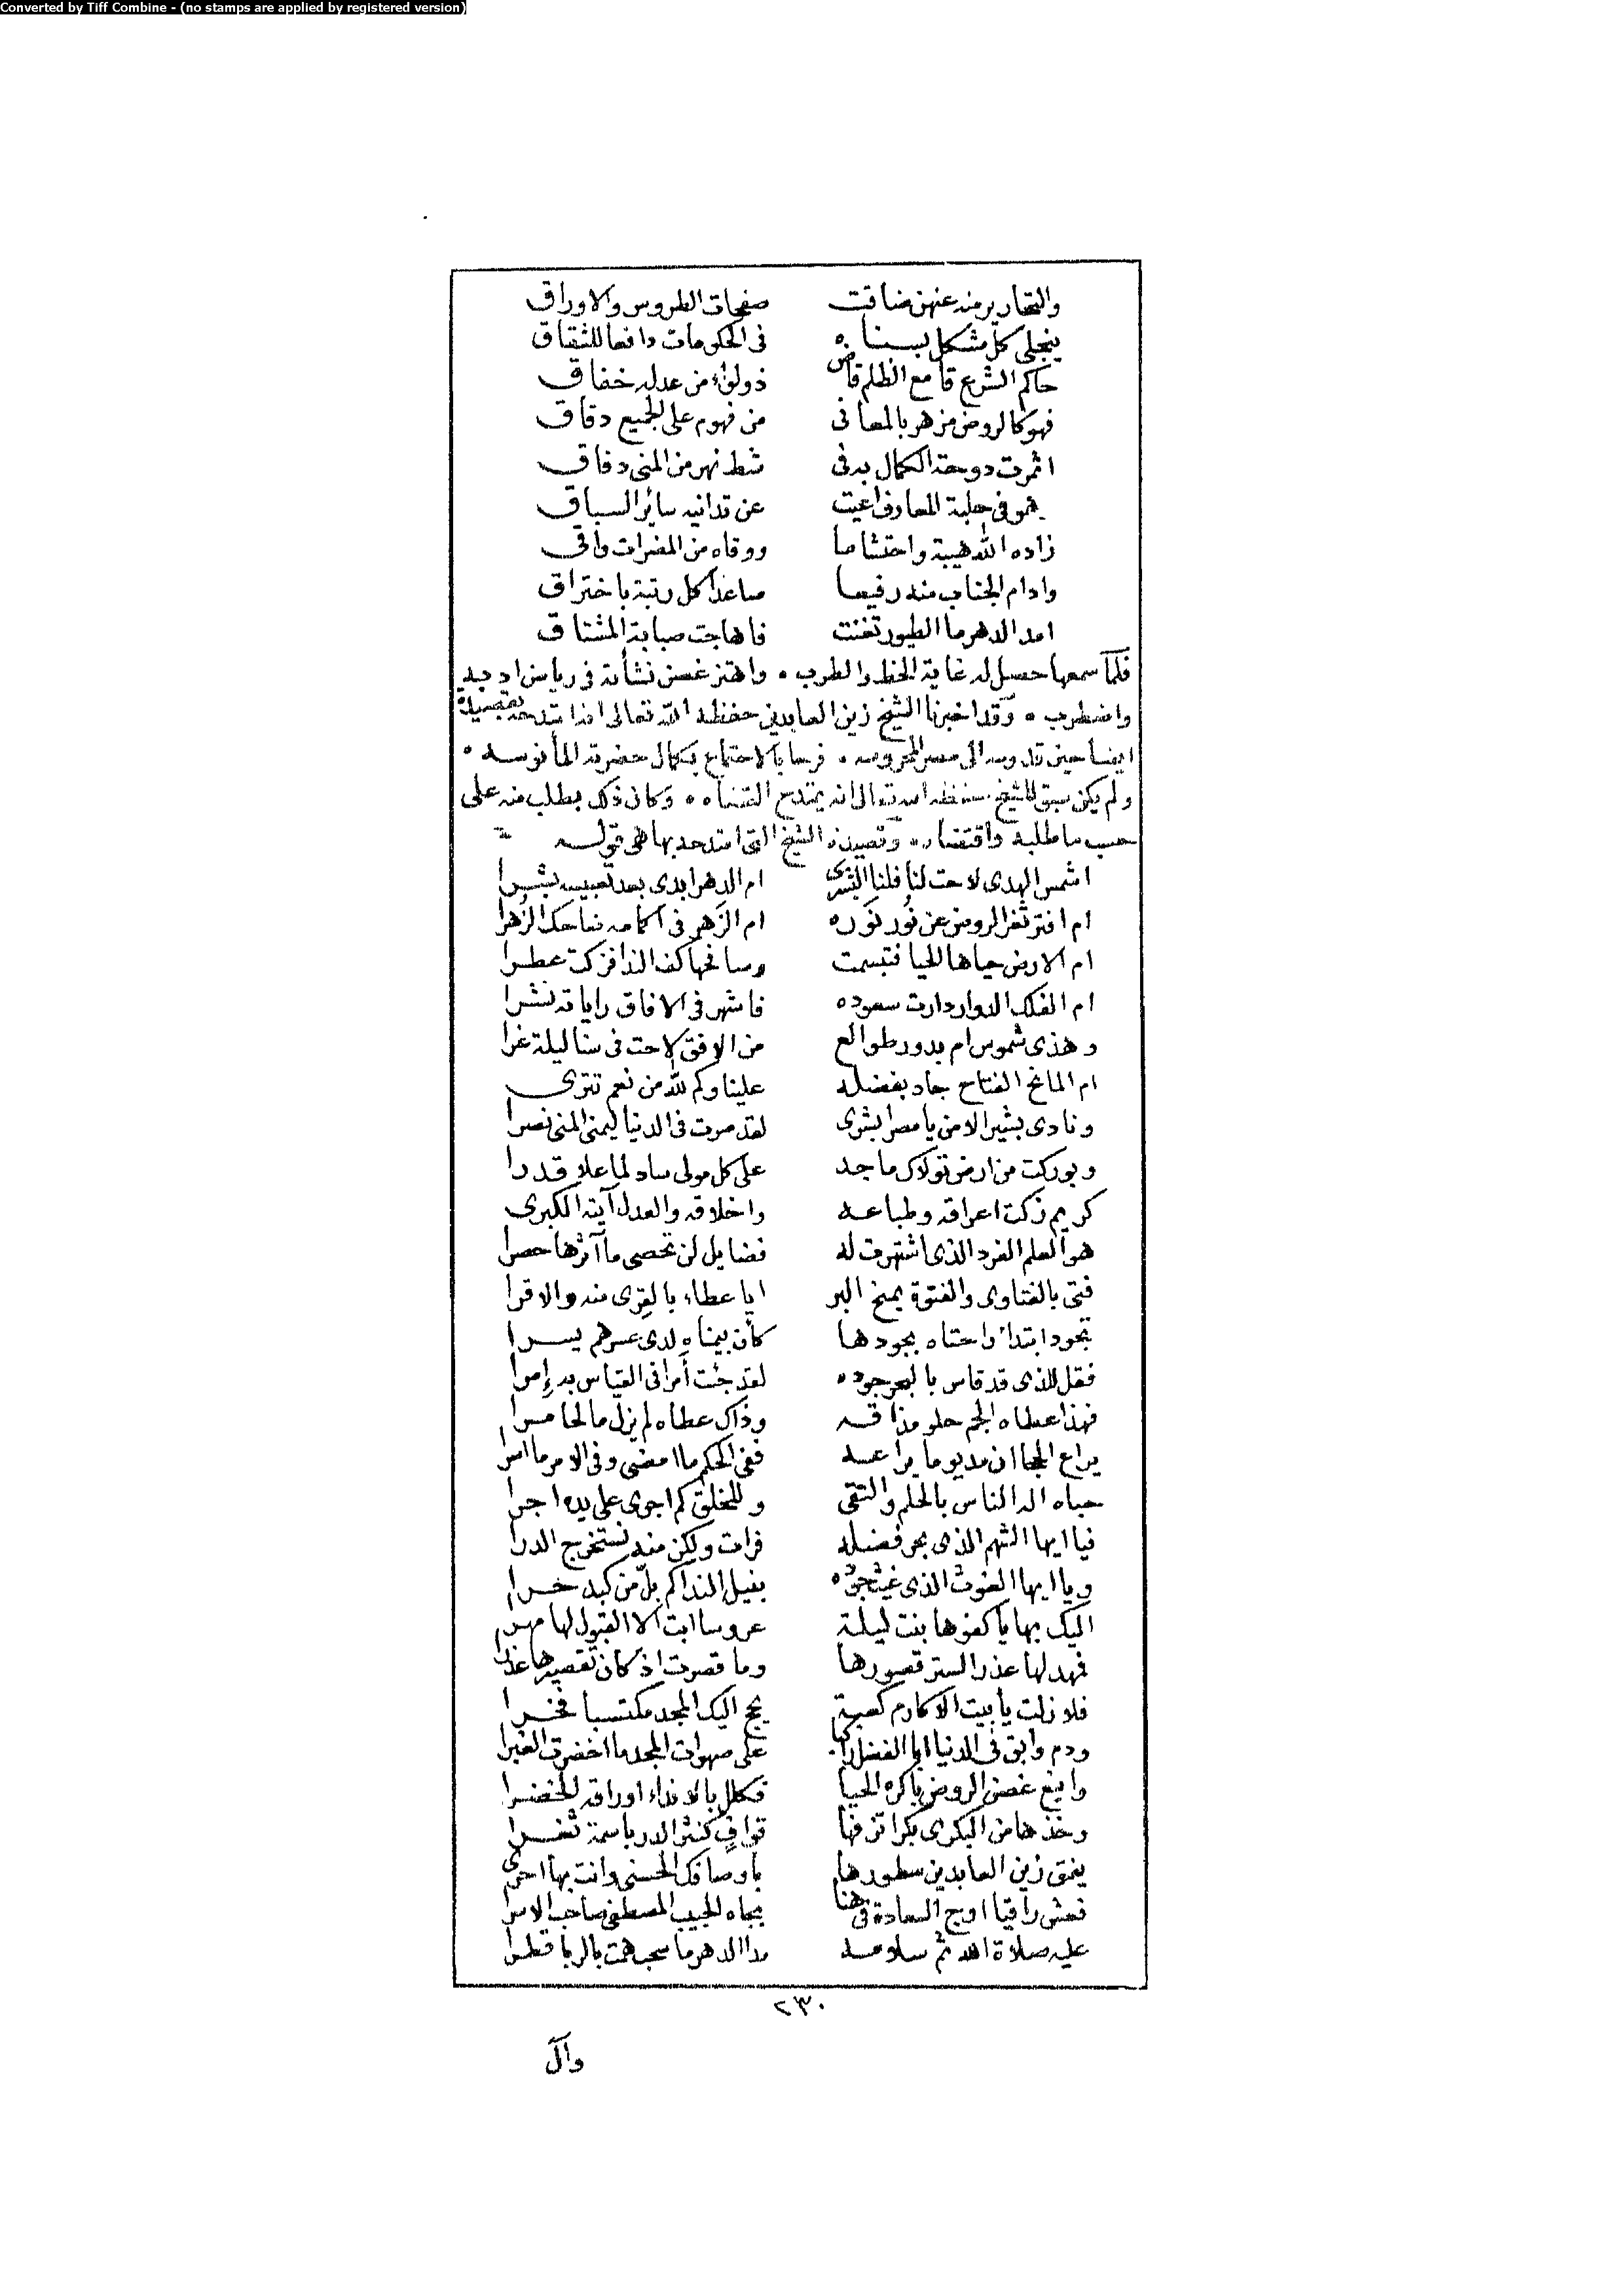 Converted by Tiff Combine - (no stamps are applied by registered version)
والتحارير منه عنهن ضاقت صفحات الطروس والاوراق
ينجلى كل مشكل بسناه فى الحكومات دافعا للشقاق
حاكم الشرع قامع الظلم قاض ذو لواء من عدله خفاق
فهو كالروض مزهر بالمعانى من فهوم على الجميع دقاق
اثمرت دوحة الكمال به فى شط نهر من المنى دفاق
هو فى حلبة المعارف اعيت عن تدانيه سائر السباق
زاده الله هيبة واحتشاما ووقاه من المضرات واقى
وادام الجناب منه رفيعا صاعدا كل رتبة باختراق
امد الدهر ما الطيور تغنت فاهاجت صبابة المشتاق
فلما سمعها حصل له غاية الحظ والطرب ٥ واهتز غصن نشأته فى رياض ادبه
واضطرب ٥ وقد اخبرنا الشيخ زين العابدين حفظه الله تعالى انه امتدحه بقصيدة
ايضا حين قدومه الى مصر المحروسه ٥ فرحا بالاجتماع بكمال حضرته المأنوسه ٥
ولم يكن سبق للشيخ حفظه الله تعالى انه يمتدح القضاه ٥ وكان ذلك بطلب منه على
حسب ما طلبه واقتضاه ٥ وقصيدة الشيخ التى امتدحه بها هى قوله
اشمس الهدى لاحت لنا فلنا البشرى ام الدهر ابدى بعد تعبيسه بشرا
ام افتر ثغر الروض عن نور نوره ام الزهر فى اكمامه ضاحك الزهرا
ام الارض حياها الحيا فتبسمت وصافحها كف الندا فزكت عطرا
ام الفلك الدوار دارت سعوده فاشهر فى الافاق راياته نشرا
وهذى شموس ام بدور طوالع من الافق لاحت فى سنا ليلة غرا
ام المانح الفتاح جاد بفضله علينا وكم لله من نعم تترى
ونادى بشير الامن يا مصر ابشرى لقد صرت فى الدنيا ليمنى المنى نصرا
وبوركت من ارض تولاك ماجد على كل مولى ساد لما علا قدرا
كريم زكت اعراقه وطباعه واخلاقه والعدل آيته الكبرى
هو العلم الفرد الذى اشتهرت له فضايل لن تحصى مآثرها حصرا
فتى بالفتاوى والفتوة يمنح البر ايا عطاء بالقرى منه والاقرا
تجود ابتداء راحتاه بجودها كأن بيمناه لدى عسرهم يسرا
فقل للذى قد قاس بالبحر جوده لقد جئت أمرا فى القياس به إمرا
فهذا عطاه الجم حلو مذاقه وذاك عطاه لم يزل مالحا مرا
يراع الحجا ان مد يوما يراعه ففى الحكم ما امضى وفى الامر ما اسرا
حباه اله الناس بالحلم والتقى وللخلق كم اجرى على يده اجرا
فيا ايها الشهم الذى بحر فضله فرات ولكن منه نستخرج الدرا
ويا ايها الغوث الذى غيث جوده بنيل الندا كم بل من كبد حرا
اليك بها يا كفوها بنت ليلة عروسا ابت الا القبول لها مهرا
فمهد لها عذر الستر قصورها وما قصرت اذ كان تقصيرها عذرا
فلا زلت يا بيت الاكارم كعبة يحج اليك المجد مكتسبا فخرا
ودم وابق فى الدنيا ابا الفضل راكبا على صهوات المجد ما اخضرت الغبرا
واينع غصن الروض باكره الحيا فكلل بالانداء اوراقه الخضرا
وخذها من البكرى بكرا تزفها قواف كنثر الدر باسمة ثغرا
ينمق زين العابدين سطورها باوصافك الحسنى وانت بها احرى
فعش راقيا اوج السعادة فى هنا بجاه الحبيب المصطفى صاحب الاسرا
عليه صلاة الله ثم سلامه مدا الدهر ما سحب همت بالربا قطرا
٢٣٠
وآل